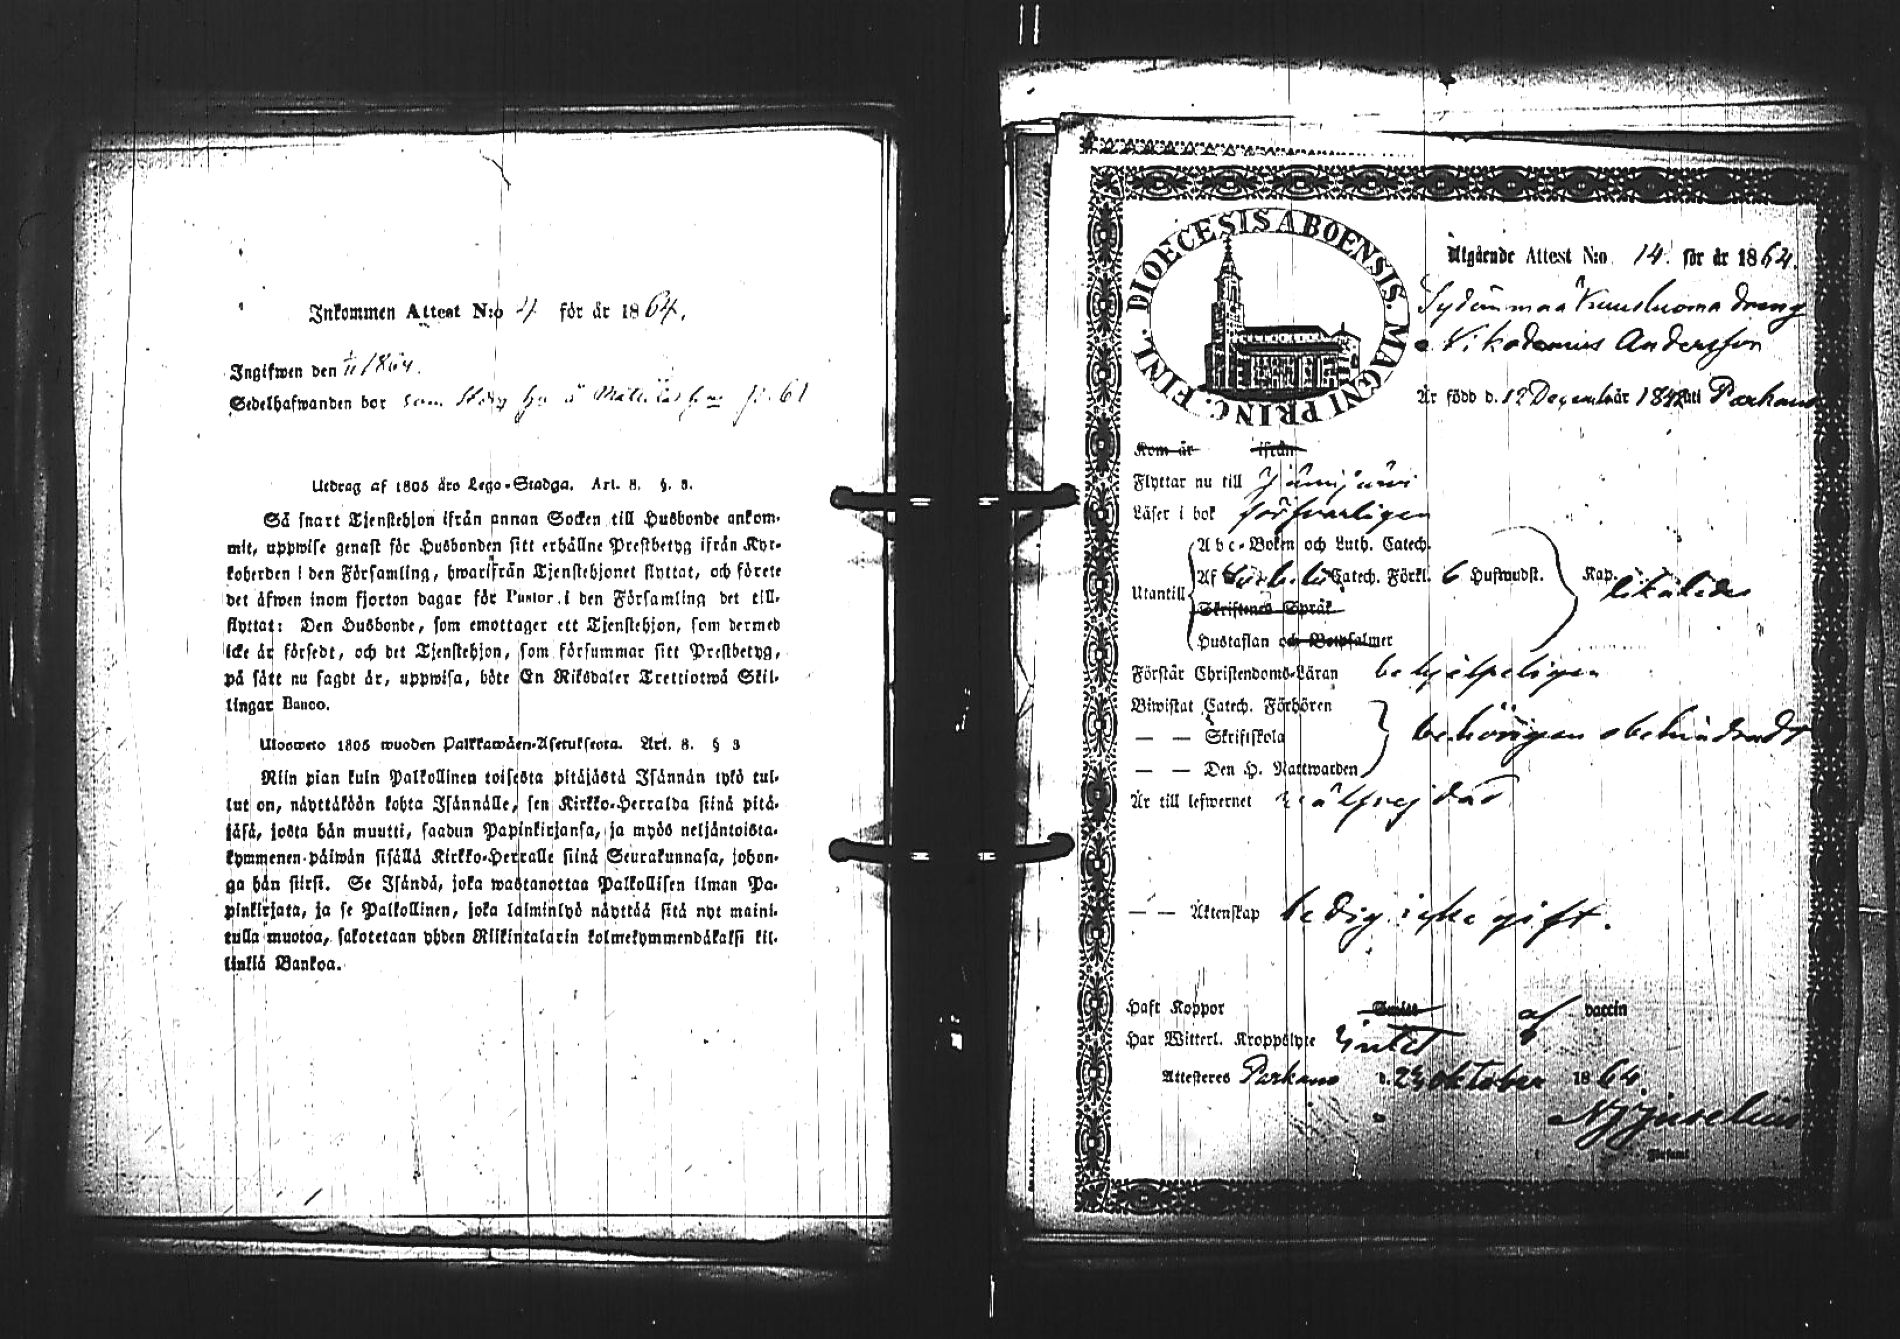 Inkommen Attest N:o 4 för år 1864.
Ingifwen den 1/11 1864.
Sedelhafwanden bor som
Utdrag af 1805 års Lego-Stadga. Art. 8. §. 3.
Så snart Tjenstehjon ifrån annan Socken till Husbonde ankom-
mit, uppwise genast för Husbonden sitt erhållne Prestbetyg ifrån Kyr-
koherden i den Församling, hwarifrån Tjenstehjonet flyttat, och förete
det äfwen inom fjorton dagar för Pastor i den Församling det till-
flyttat: Den Husbonde, som emottager ett Tjenstehjon, som dermed
icke är försedt, och det Tjenstehjon, som försummar sitt Prestbetyg,
på sätt nu sagdt är, uppwisa, böte En Riksdaler Trettiotwå Skil-
lingar Banco.
Ulosweto 1805 wuoden Palkkawäen-Asetuksesta. Art. 8. § 3
Niin pian kuin Palkollinen toisesta pitäjästä Isännän tykö tul-
lut on, näyttäköön kohta Isännälle, sen Kirkko-Herralda siinä pitä-
jäsä, josta hän muutti, saadun Papinkirjansa, ja myös neljäntoista-
kymmenen päiwän sisällä Kirkko-Herralle siinä Seurakunnasa, johon-
ga hän siirsi. Se Isändä, joka wastanottaa Palkollisen ilman Pa-
pinkirjata, ja se Palkollinen, joka laiminlyö näyttää sitä nyt maini-
tulla muotoa, sakotetaan yhden Riikintalarin kolmekymmendäkaksi kil-
linkiä Bankoa.
DIOECESIS ABOENSIS. MAGNI PRINC. FINL.
Utgående Attest N:o 14. för år 1864.
Sydänmaa Kuusluoma dreng
Nikodemus Andersson
Är född d. 12 December år 1842 uti Parkano
Kom år ifrån
Flyttar nu till Jämijärvi
Läser i bok försvarligen
Utantill
Abc-Boken och Luth. Catech.
Af Catech. Förkl. 6 Huswudst. Kap.
likaledes
Skriftenes Språk
Hustaflan och Botpsalmer
Förstår Christendoms-Läran behjelpeligen
Biwistat Catech. Förhören
— — Skriftskola behörigen obehindradt
— — Den H. Nattwarden
Är till lefwernet välfrejdad
— — Äktenskap ledig icke gift.
Haft Koppor Smitt af vaccin
Har Witterl. Kroppslyte Intet
Attesteres Parkano d. 24 Oktober 1864.